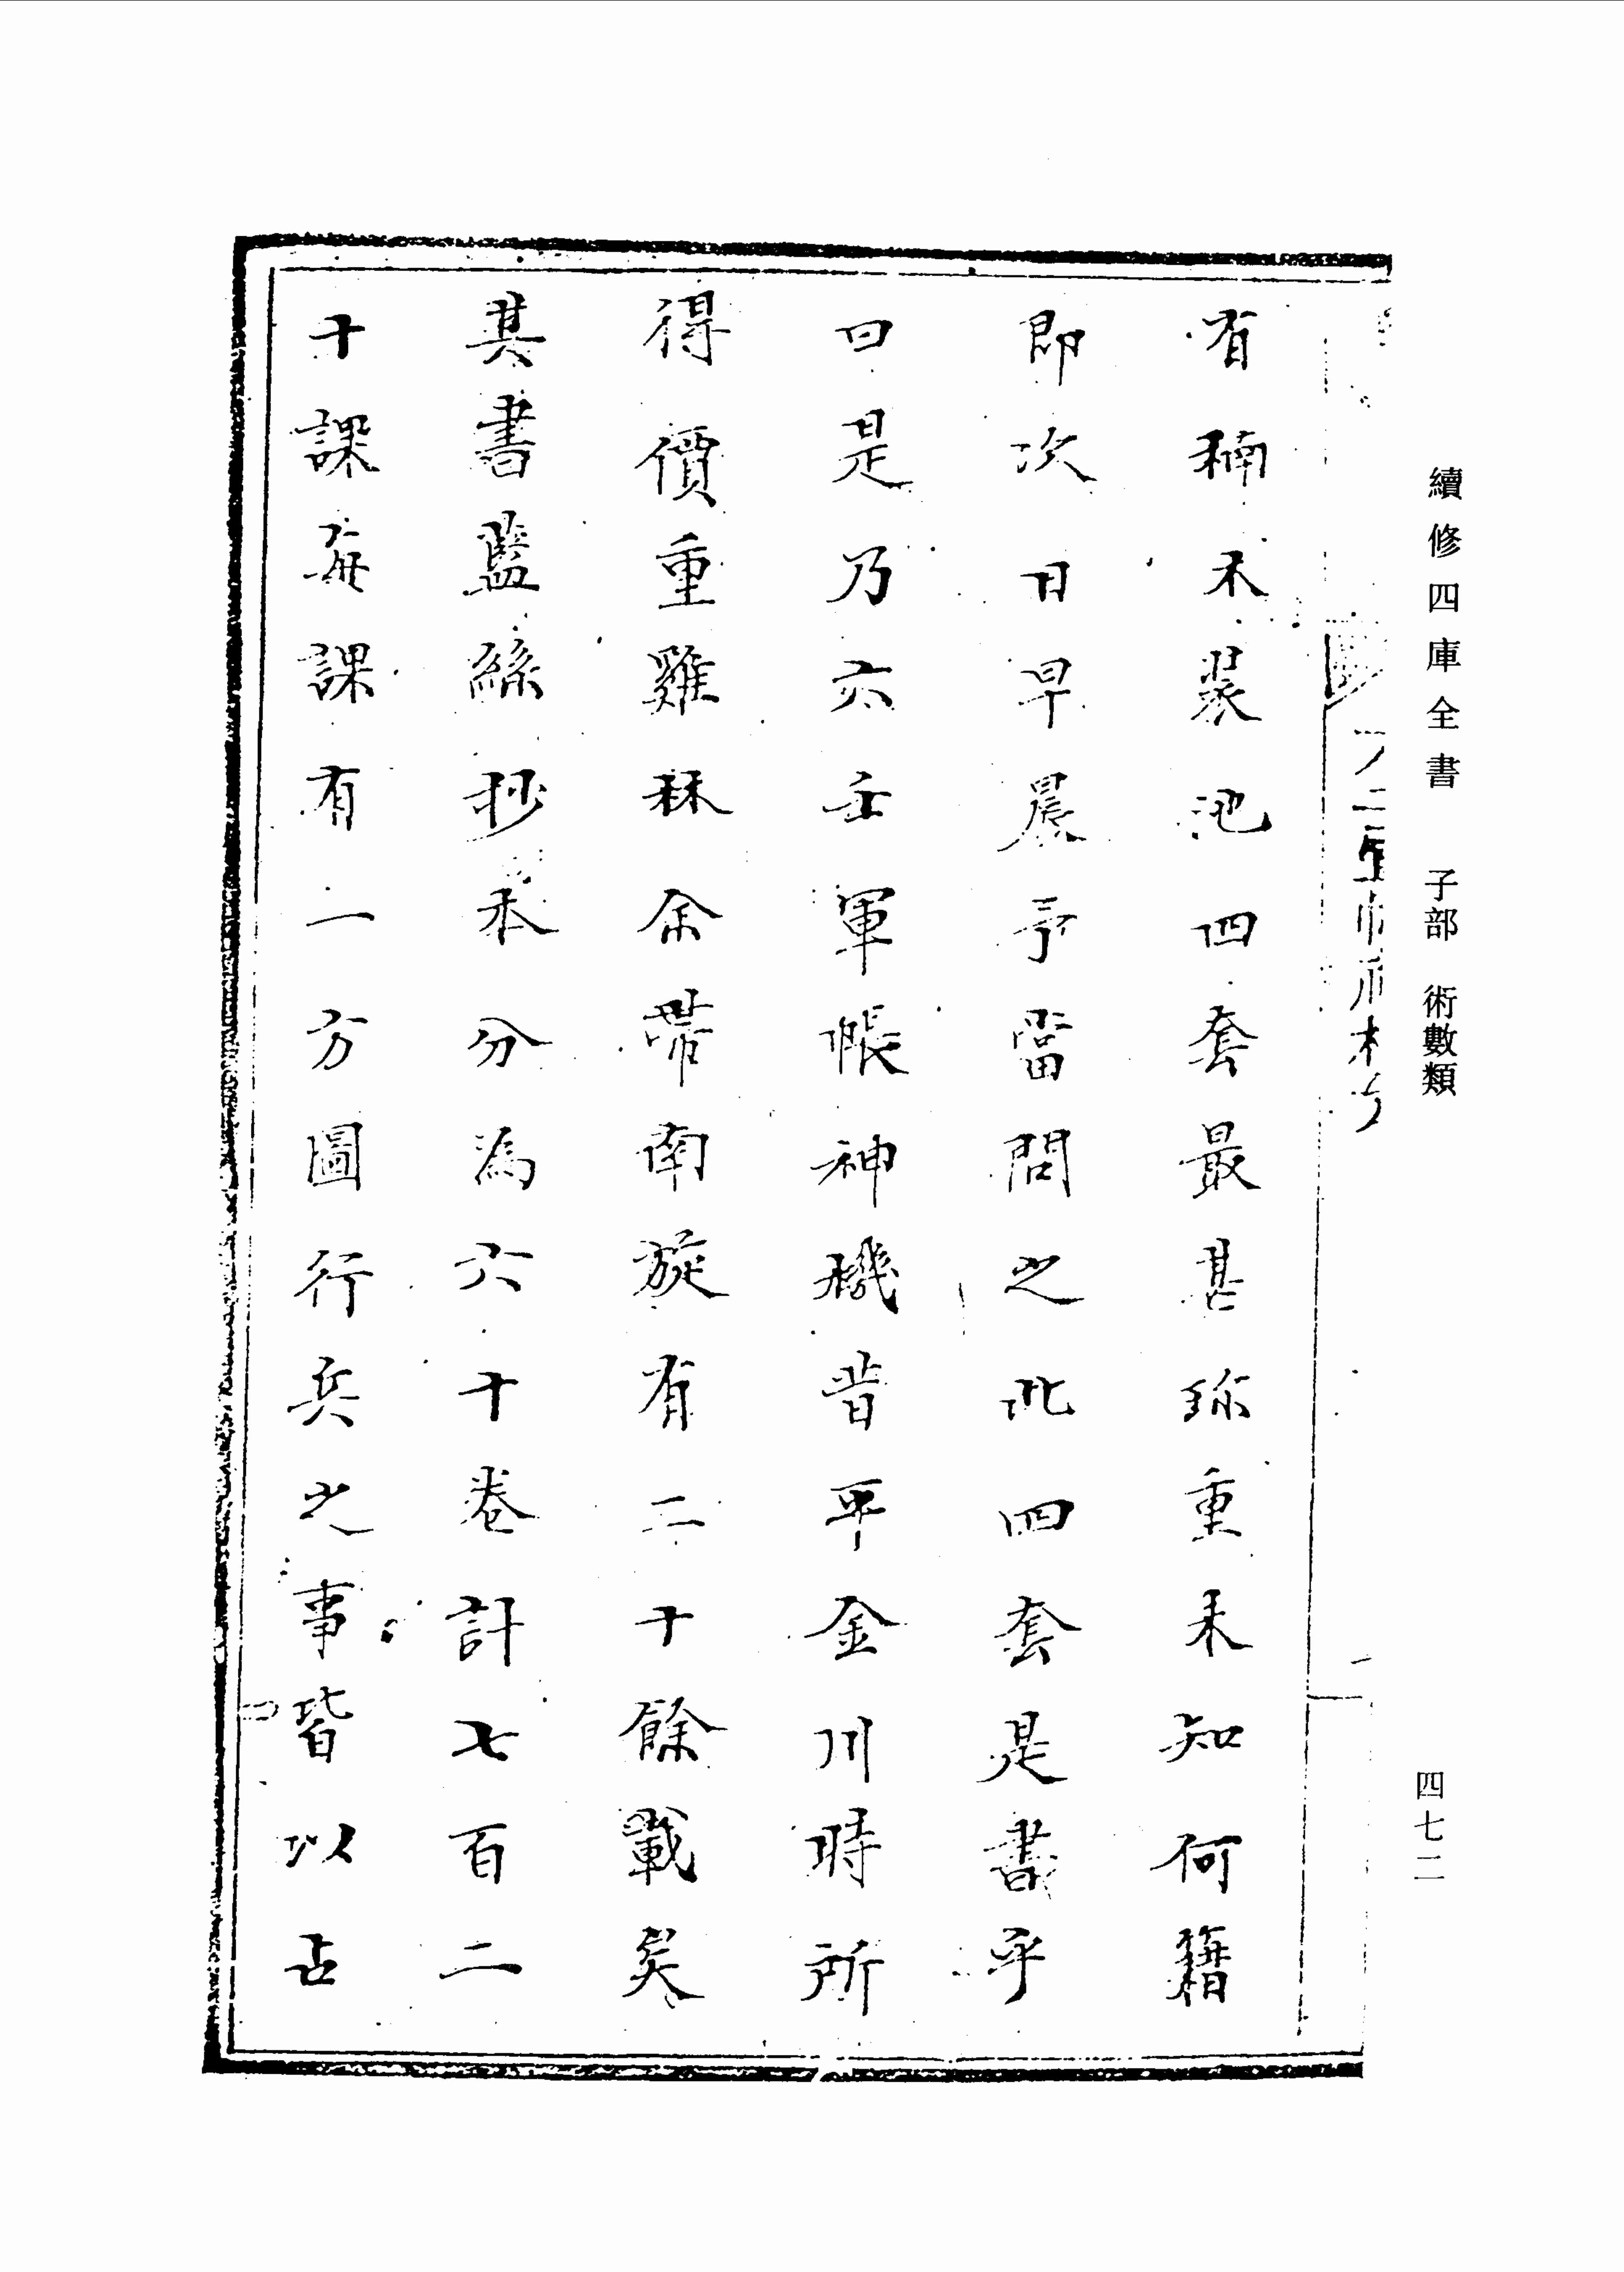 續修四庫全書 子部 術數類
四七二
有楠木裝池四套最甚珎重未知何籍
即次日早晨予當問之此四套是書乎
曰是乃六壬軍帳神機昔平金川時所
得價重雞林余帶南旋有二十餘載矣
其書藍絲抄本分為六十卷計七百二
十課每課有一方圖行兵之事皆以占